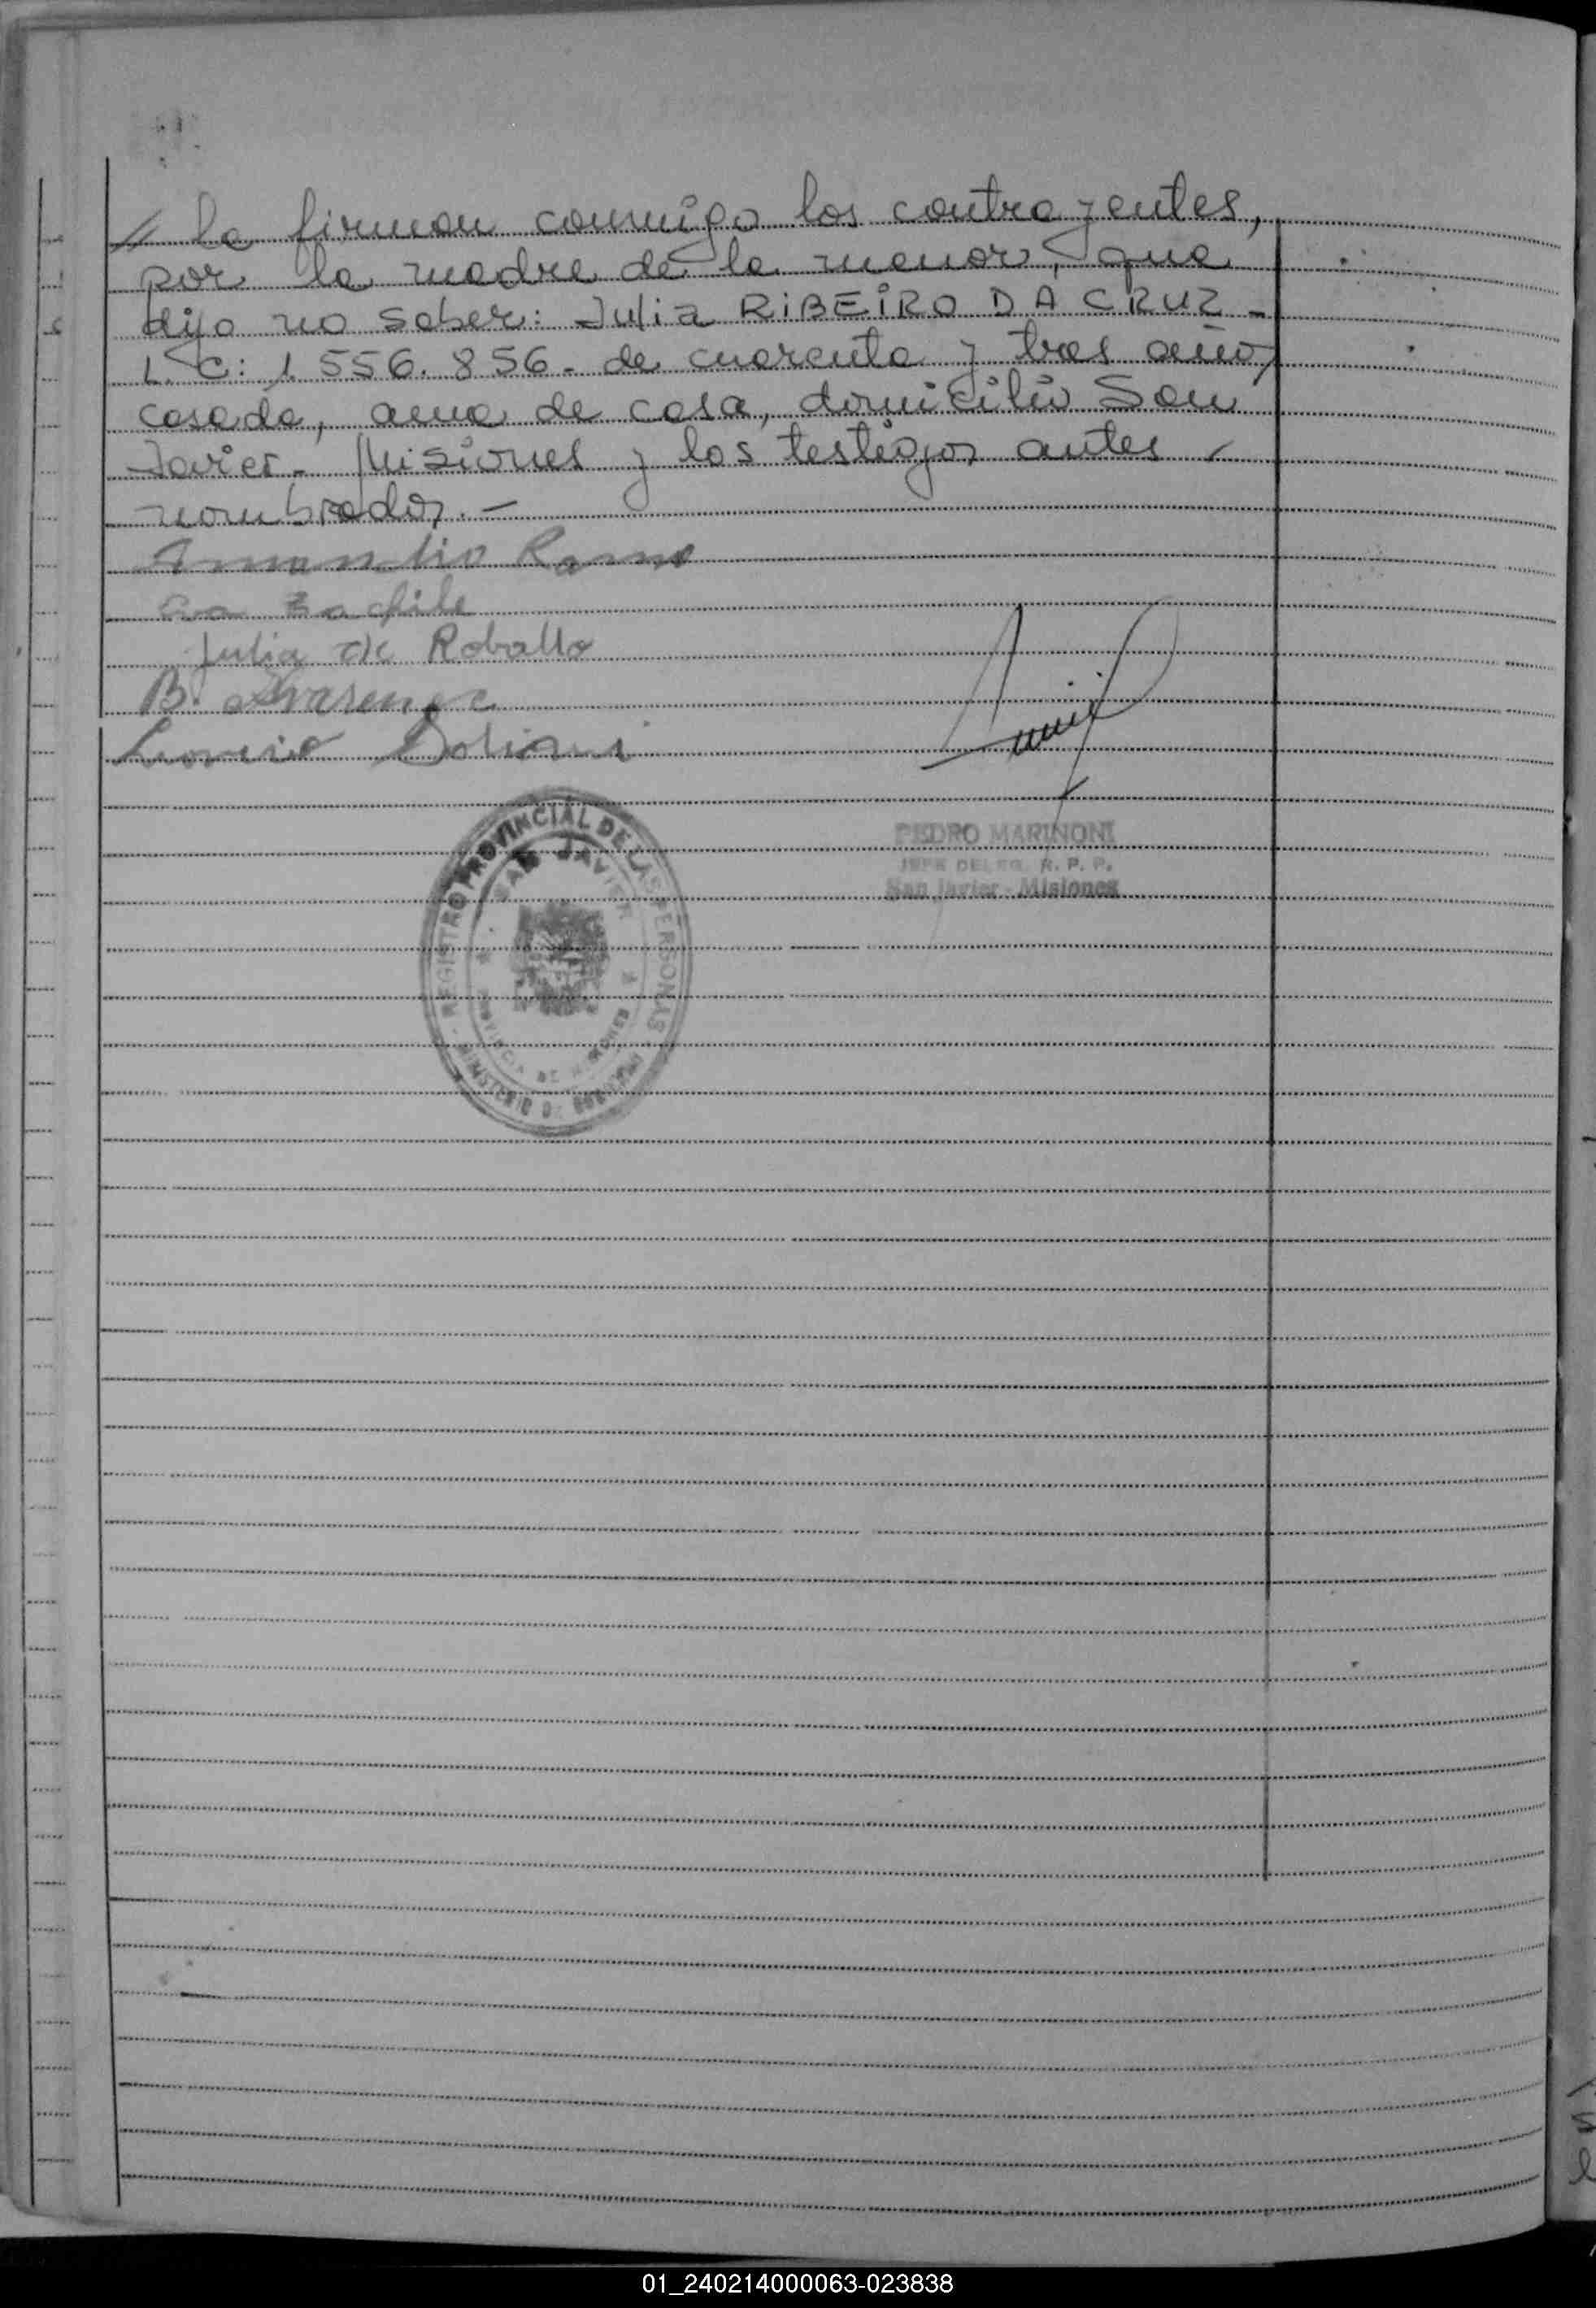 // la firman conmigo los contrayentes,
por la madre de la menor, que
dijo no saber: Julia RIBEIRO DA CRUZ -
L. C: 1.556.856 - de cuarenta y tres años,
casada, ama de casa, domicilio San
Javier - Misiones y los testigos antes -
nombrados. -
Julia de Roballo
B.
PEDRO MARINONI
JEFE DELEG. R. P. P.
San Javier - Misiones
REGISTRO PROVINCIAL DE LAS PERSONAS
SAN JAVIER
PROVINCIA DE MISIONES
MINISTERIO DE GOBIERNO
01_240214000063-023838